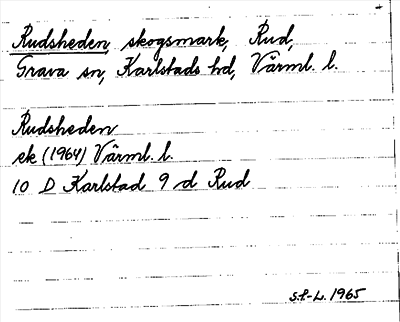 Rudsheden, skogsmark, Rud,
Grava sn, Karlstads hd, Värml. l.
Rudsheden
ek (1964) Värml. l.
10 D Karlstad 9 d Rud
S.F.-L. 1965